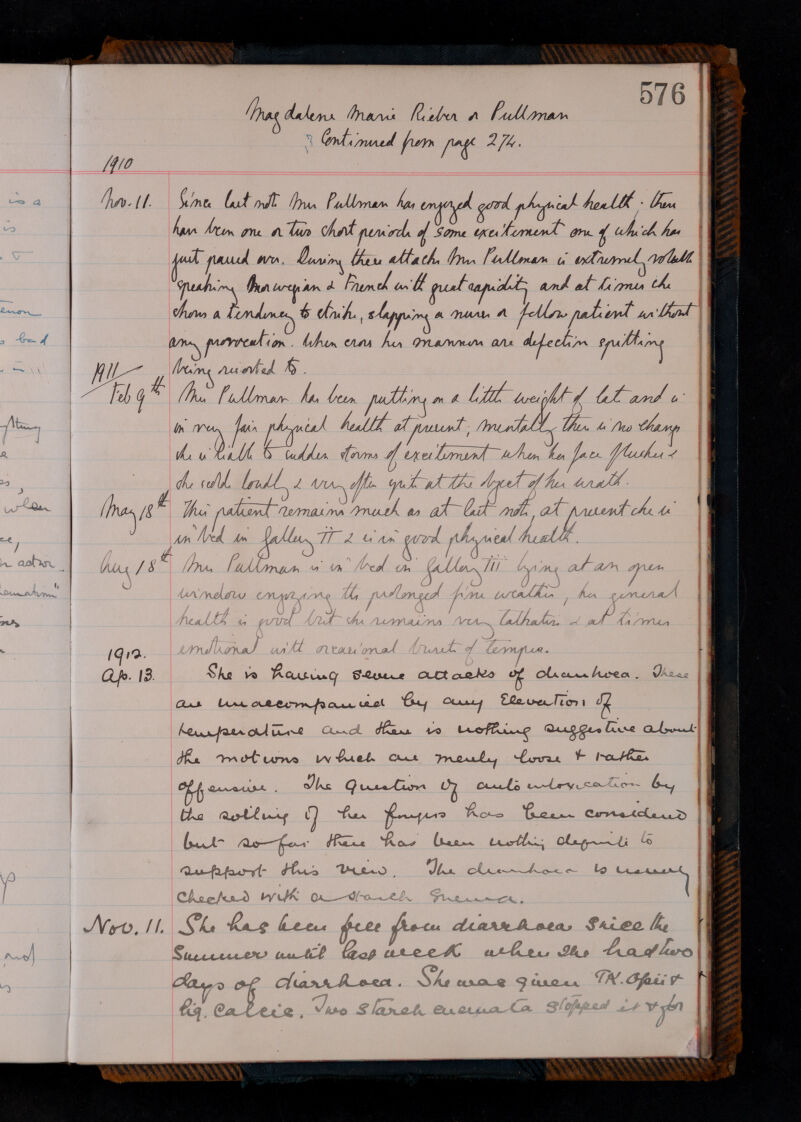 576
Magdalene Marie Rieber or Pullman
Continued from page 274.
1910
Nov. 11. Since last note Mrs Pullman has enjoyed good physical health; there
have been one or two short periods of some excitement one of which has
just passed over. During these attacks Mrs Pullman is extremely voluble
speaking Norwegian & French with great rapidity and at times she
shows a tendency to strike, slapping a nurse or fellow patient without
any provocation. When cross her manners are defective spitting
being resorted to.
1911
Feb 9th Mrs Pullman has been putting on a little weight of late and is
in very fair physical health at present, mentally there is no change
she is liable to sudden storms of excitement when her face flushes &
she scolds loudly & very often spits at the object of her wrath.
May 18th This patient remains much as at last note, at present she is
in bed in Gallery III & is in good physical health.
Aug 18th Mrs Pullman is in bed in Gallery III lying at an open
window enjoying the prolonged fine weather, her general
health is good but she remains very talkative & at times
emotional with occasional bursts of temper.
1912.
Ap. 13. She is having severe attacks of diarrhoea. These
are unaccompanied by any Elevation of
temperature and there is nothing suggestive about
the motions which are merely loose & rather
offensive. The question of auto intoxication by
the soiling of her fingers has been considered
but so far there has been nothing definite to
support this view. The diarrhoea is usually
checked with a starch Enema.
Nov. 11. She has been free from diarrhoea since the
Summer until last week when she had two
days of diarrhoea. She was given Tr. Opii &
Liq. Calcis. Two starch enemata stopped it & for
is a
is
band
when
and